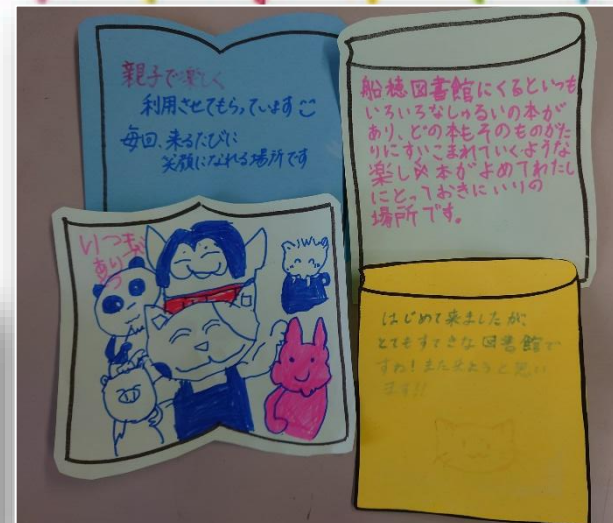 親子で楽しく
利用させてもらっています
毎回、来るたびに
笑顔になれる場所です
船穂図書館にくるといつも
いろいろなしゅるいの本が
あり、どの本もそのものがた
りにすいこまれていくような
楽しい本がよめてわたし
にとっておきにいりの
場所です。
いつも
あり
はじめて来ましたが、
とてもすてきな図書館で
すね!また来ようと思い
ます!!